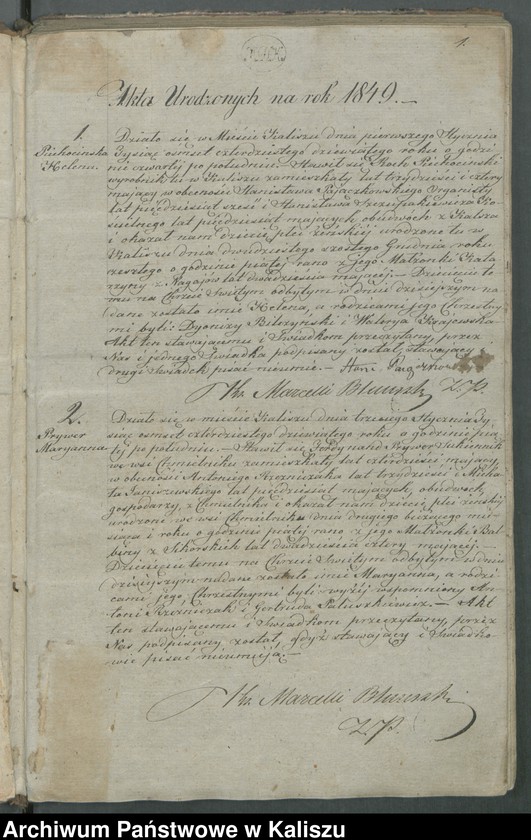 1.
Akta Urodzonych na rok 1849.
1.
Helena.
Działo się w Mieście Kaliszu dnia pierwszego Stycznia
Tysiąc ośmset czterdziestego dziewiątego roku o godzi-
nie czwartej po południu. Stawił się Roch
wyrobnik tu w Kaliszu zamieszkały lat trzydzieści i cztery
mający w obecności Stanisława Pajączkowskiego Organisty
lat pięćdziesiąt sześć i Stanisława
lat pięćdziesiąt mających obudwóch z Kalisza
i okazał nam dziecię płci żeńskiej urodzone tu w
Kaliszu dnia dwudziestego szóstego Grudnia roku
zeszłego o godzinie piątej rano z jego Małżonki Kata-
rzyny z Nagajów lat dwadzieścia mającej. Dziecięciu te-
mu na Chrzcie Świętym odbytym w dniu dzisiejszym na-
dane zostało imię Helena, a rodzicami jego Chrzestny-
mi byli: Dyonizy i Walerya Krajewska
Akt ten stawającemu i Świadkom przeczytany, przez
Nas i jednego Świadka podpisany został, stawający i
drugi Świadek pisać nieumie.
Ks. Marcelli
2.
Prywer
Maryanna
Działo się w mieście Kaliszu dnia trzeciego Stycznia Ty-
siąc ośmset czterdziestego dziewiątego roku o godzinie pią-
tej po południu. Stawił się Ferdynand Prywer Sukiennik
we wsi Chmielniku zamieszkały lat czterdzieści mający
w obecności Antoniego Rzeźniczaka lat trzydzieści i Micha-
ła Janiszewskiego lat pięćdziesiąt mających, obudwóch,
gospodarzy, z Chmielnika i okazał nam dziecię płci żeńskiej
urodzone we wsi Chmielniku dnia drugiego bieżącego mie-
siąca i roku o godzinie piątej rano z jego Małżonki Bal-
biny z Sikorskich lat dwadzieścia cztery mającej.
Dziecięciu temu na Chrzcie Świętym odbytym w dniu
dzisiejszym nadane zostało imię Maryanna, a rodzi-
cami jego, Chrzestnymi byli: wyżej wspomniony An-
toni Rzeźniczak i Gertruda Paluszkiewicz. Akt
ten stawającemu i Świadkom przeczytany, przez
Nas podpisany został, gdyż stawający i Świadko-
wie pisać nieumieją.
Ks. Marcelli
Archiwum Państwowe w Kaliszu